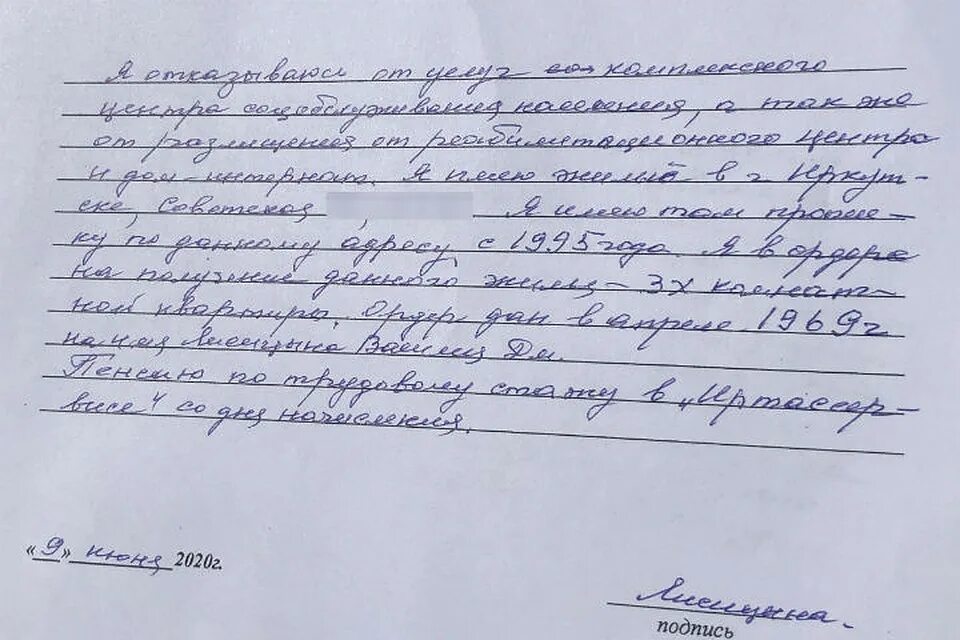 Я отказываюсь от услуг комплексного
центра соцобслуживания населения, а так же
от размещения от реабилитационного центра
и дом-интернат. Я имею жильё в г Иркут-
ске, Советская Я имею там пропис-
ку по данному адресу с 1995 года. Я в ордере
на получение данного жилья – 3х комнат-
ной квартиры. Ордер дан в апреле 1969 г
на имя Лисицына Дм.
Пенсию по трудовому стажу в „Иртассер-
висе" со дня начисления.
«9» июня 2020г.
Лисицына
подпись